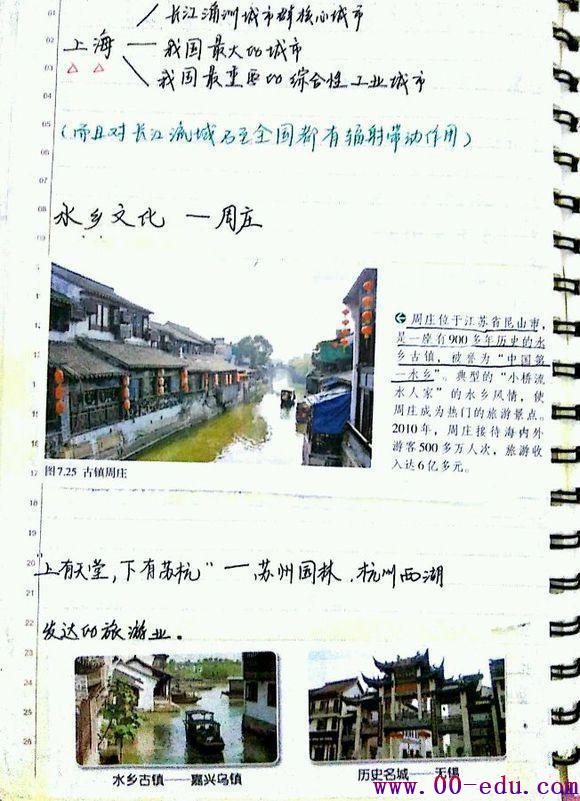 长江三角洲城市群核心城市
上海 — 我国最大的城市
我国最重要的综合性工业城市
(而且对长江流域乃至全国都有辐射带动作用)
水乡文化 — 周庄
周庄位于江苏省昆山市,
是一座有900多年历史的水
乡古镇,被誉为“中国第
一水乡”。典型的“小桥流
水人家”的水乡风情,使
周庄成为热门的旅游景点。
2010年,周庄接待海内外
游客500多万人次,旅游收
入达6亿多元。
图7.25 古镇周庄
上有天堂,下有苏杭” — 苏州园林、杭州西湖
发达的旅游业。
水乡古镇——嘉兴乌镇
历史名城——无锡
www.00-edu.com